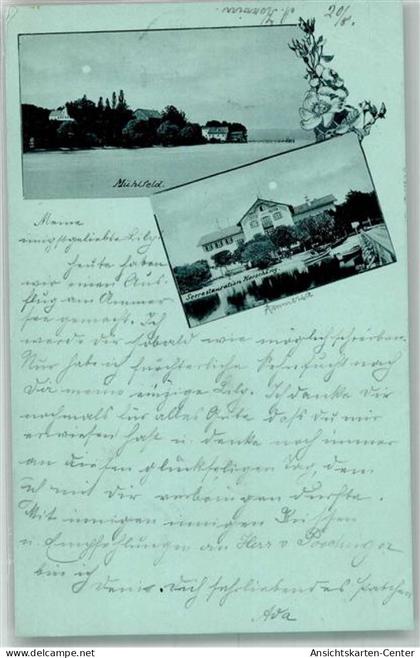 20/8.
Mühlfeld.
Seerestauration Herrsching.
Ammersee
Meine
innigstgeliebte Lily.
Heute haben
wir einen Aus-
flug am Ammer-
see gemacht. Ich
werde dir sobald wie möglich schreiben.
Nur habe ich fürchterliche Sehnsucht nach
Dir meine einzige Lily. Ich danke dir
nochmals für alles Gute dass du mir
erwiesen hast u. denke noch immer
an diesen glückseligen Tag, den
ich mit Dir verbringen durfte.
Mit innigen innigen Küssen
u. Empfehlungen an Herr v.
bin ich Dich sehrliebendes
Ada
Ansichtskarten-Center
www.Ansichtskarten-Center.com